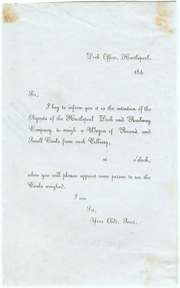 Dock Office, Hartlepool,
184
Sir,
I beg to inform you it is the intention of the
Agents of the Hartlepool Dock and Railway
Company to weigh a Wagon of Round and
Small Coals from each Colliery,
at o'clock,
when you will please appoint some person to see the
Coals weighed.
I am
Sir,
Your Obdt. Servt.